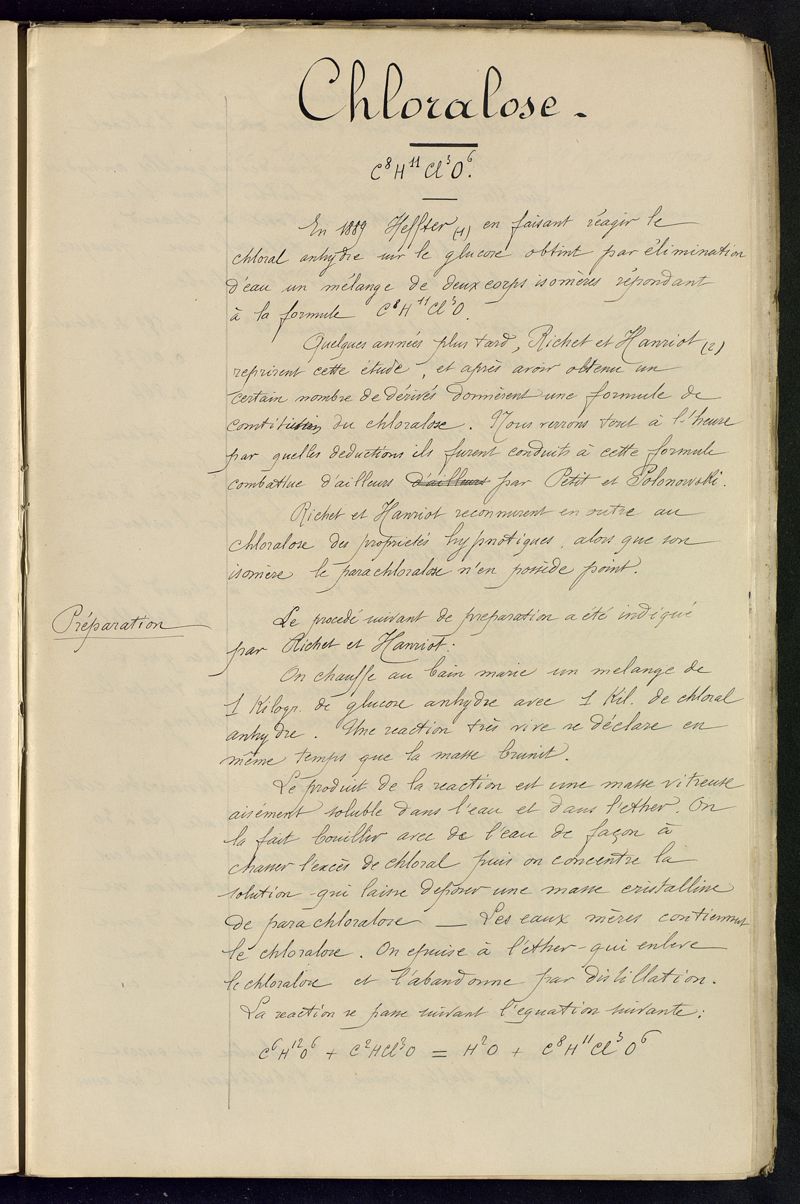 Chloralose.
C⁸H¹¹Cl³O⁶.
En 1889 Heffter (1) en faisant réagir le
chloral anhydre sur le glucose obtint par élimination
d'eau un mélange de deux corps isomères répondant
à la formule C⁸H¹¹Cl³O.
Quelques années plus tard, Richet et Hanriot (2)
reprirent cette étude, et après avoir obtenu un
certain nombre de dérivés donnèrent une formule de
constitution du chloralose. Nous verrons tout à l'heure
par quelles deductions ils furent conduits à cette formule
combattue d'ailleurs d'ailleurs par Petit et Polonowski.
Richet et Hanriot reconnurent en outre au
chloralose des propriétés hypnotiques, alors que son
isomère le parachloralose n'en possède point.
Préparation
Le procedé suivant de preparation a été indiqué
par Richet et Hanriot:
On chauffe au bain marie un melange de
1 Kilogr. de glucose anhydre avec 1 Kil. de chloral
anhydre. Une reaction très vive se déclare en
même temps que la masse brunit.
Le produit de la reaction est une masse vitreuse
aisément soluble dans l'eau et dans l'ether. On
la fait bouillir avec de l'eau de façon à
chasser l'excès de chloral puis on concentre la
solution qui laisse deposer une masse cristalline
de parachloralose — Les eaux mères contiennent
le chloralose. On epuise à l'ether qui enleve
le chloralose et l'abandonne par distillation.
La reaction se passe suivant l'equation suivante:
C⁶H¹²O⁶ + C²HCl³O = H²O + C⁸H¹¹Cl³O⁶